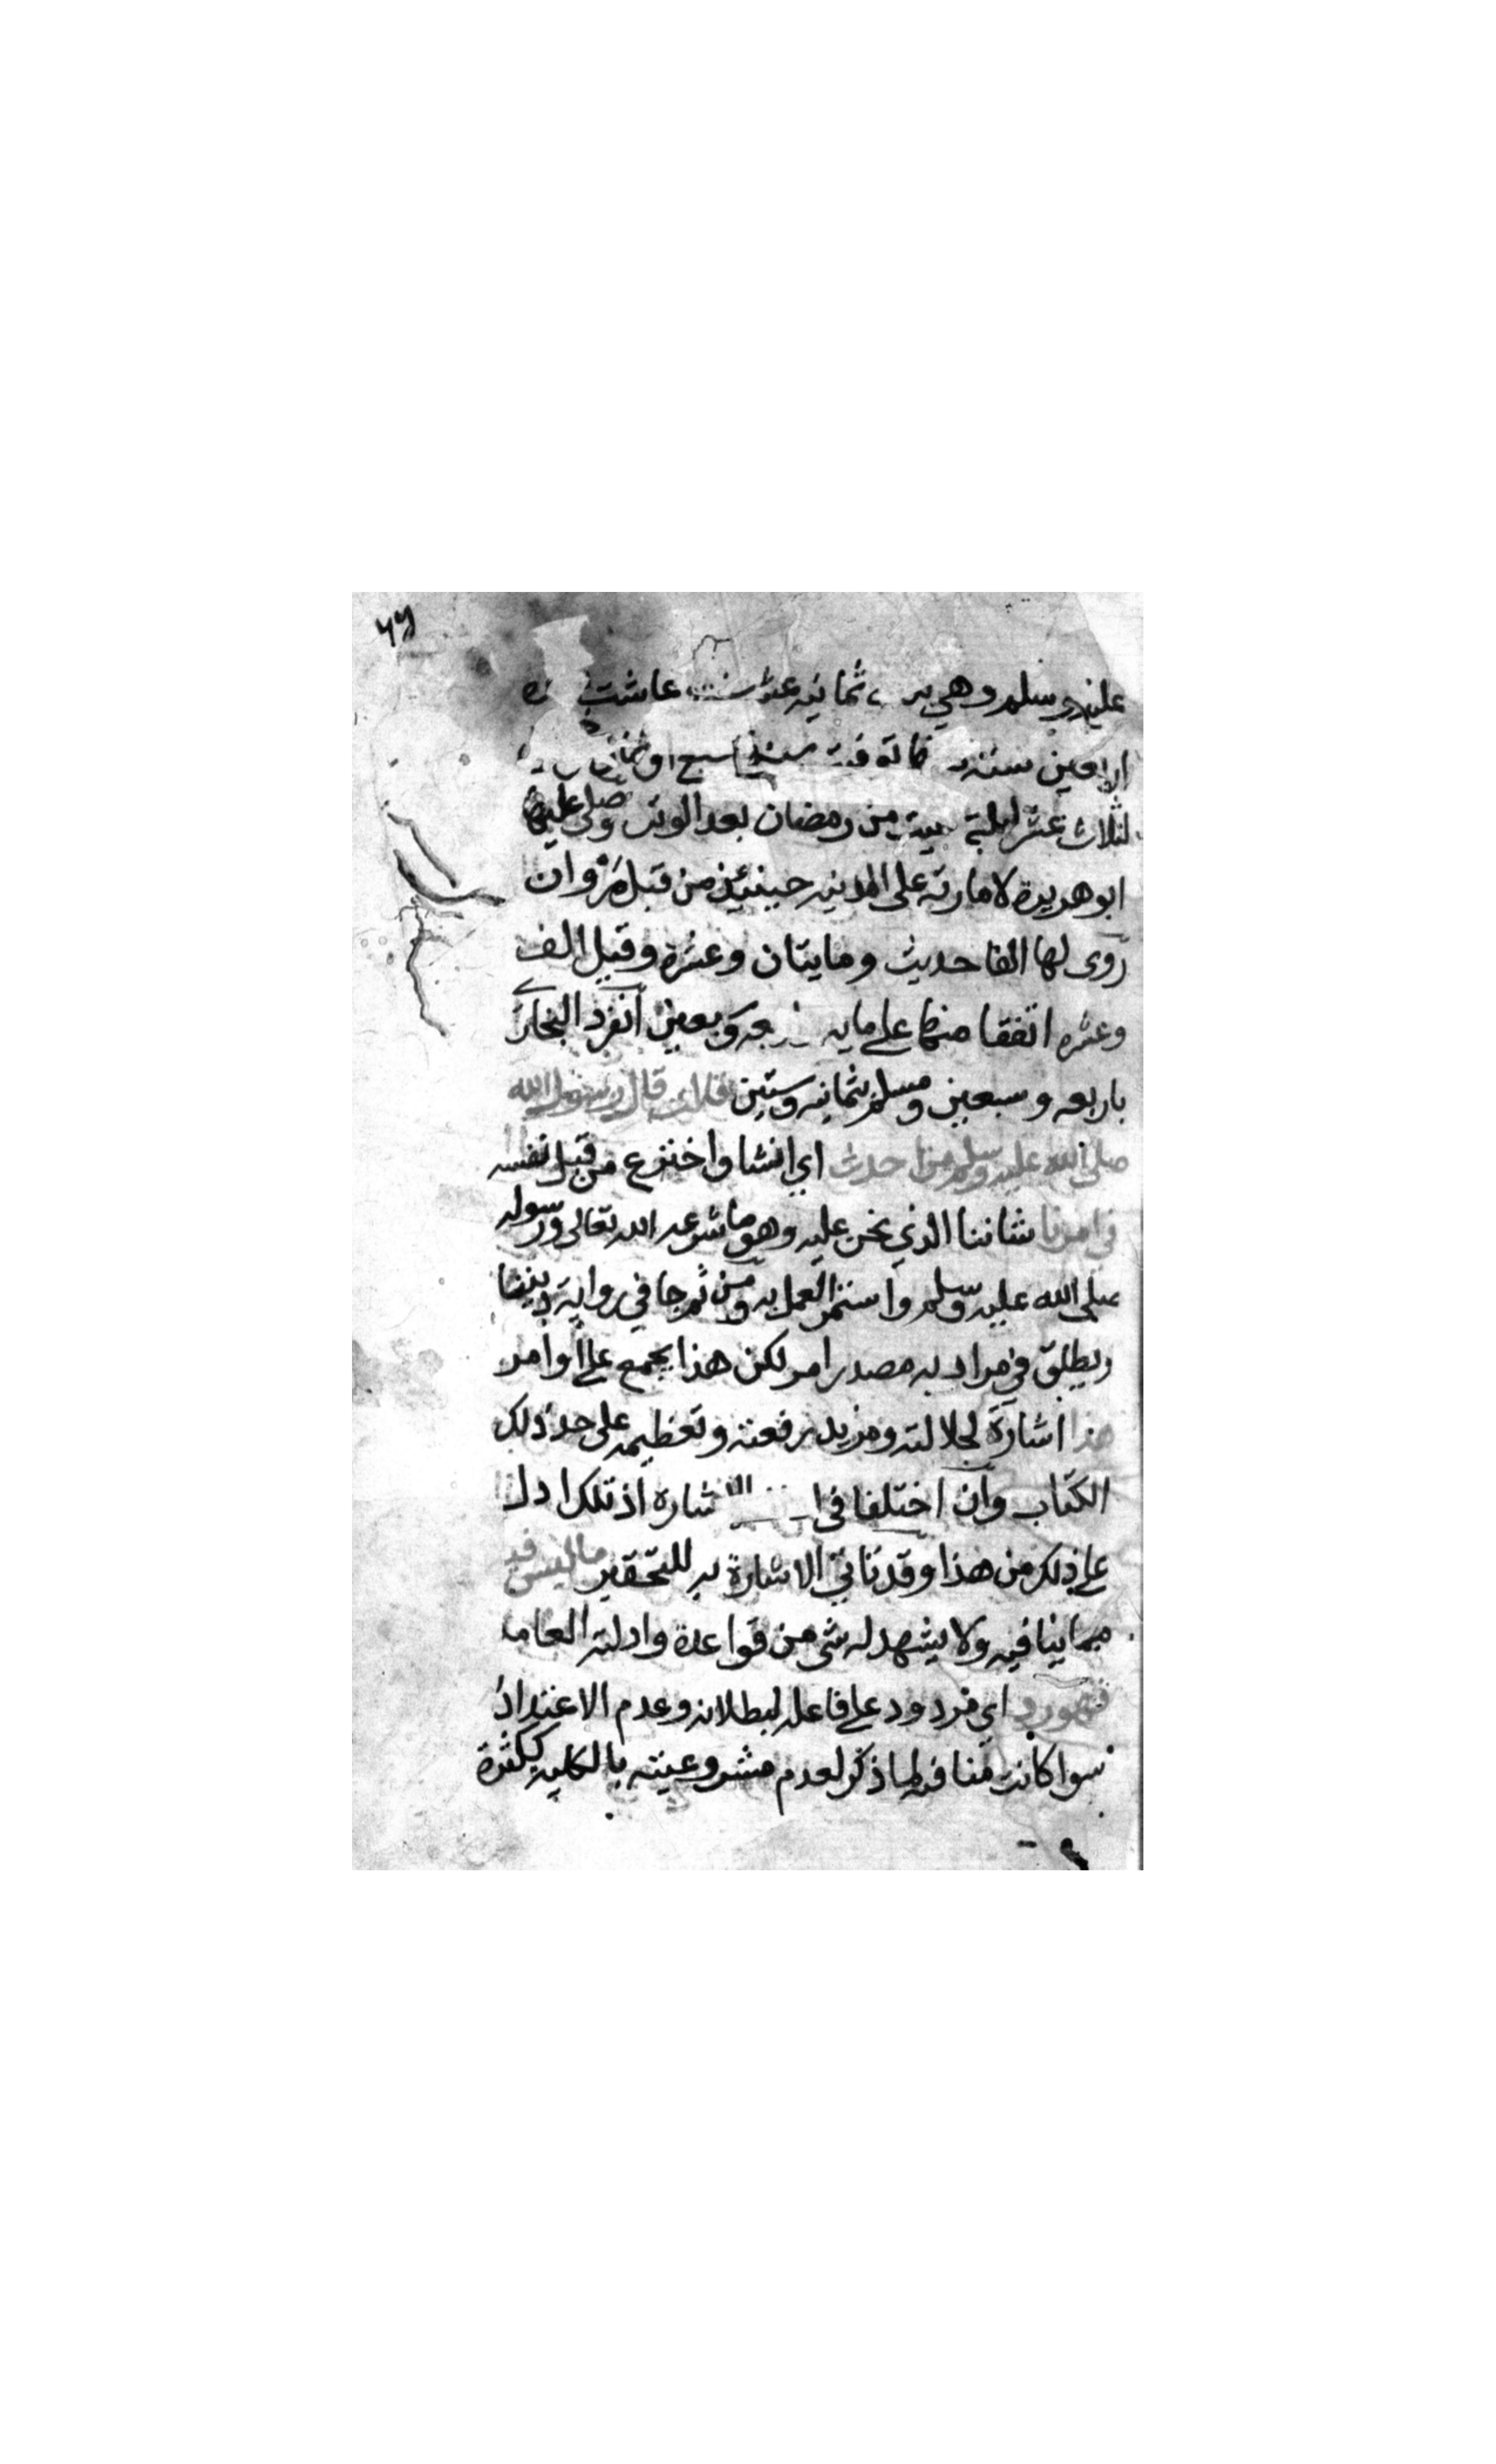 ٧٩
عليه وسلم وهي ثمانيه عشر سنه عاشت
اربعين سنه توفت سنه سبع او
لثلاث عشر ليلة من رمضان بعد الوتر وصلى عليها
ابو هريرة لامارته على المدينه حينئذ من قبل مروان
روى لها الفا حديث ومايتان وعشرة وقيل الف
وعشره اتفقا منها على مايه وسبعين انفرد البخاري
باربعه وسبعين ومسلم بثمانيه وستين قالت قال رسول الله
صلى الله عليه وسلم من احدث اي انشا واخترع من قبل نفسه
في امرنا شاننا الذي نحن عليه وهو ما شرعه الله تعالى ورسوله
صلى الله عليه وسلم واستمر العمل به ومن ثم جا في رواية ديننا
ويطلق مراد به مصدر امر لكن هذا يجمع على اوامر
هذا اشارة لجلالته ومزيد رفعته وتعظيمه على حد ذلك
الكتاب وان اختلفا في شاره اذ تلك ادل
على ذلك من هذا وقد تاتي الاشارة به للتحقير ما ليس فيه
مما ينافيه ولا يشهد له شي من قواعده وادلته العامه
فهو رد اي مردود على فاعله لبطلانه وعدم الاعتداد
سوا كانت منافيه لما ذكر لعدم مشروعيته بالكليه ككثرة